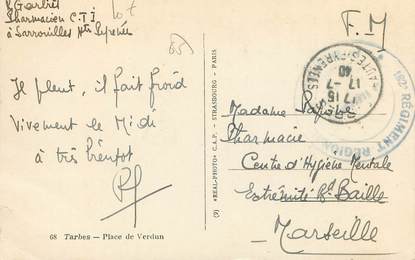 Pharmacien C.T.I
à Sarrouilles Htes Pyrénées
Il pleut, il fait froid
Vivement le Midi
à très bientôt
68 Tarbes — Place de Verdun
(9) «REAL-PHOTO» C.A.P. - STRASBOURG - PARIS
F.M
HAUTES-PYRENEES
17 15
17 -7
40
182e REGIMENT
REGION
Madame
Pharmacie
Centre d'Hygiène Mentale
Extrémité Bd Baille
Marseille